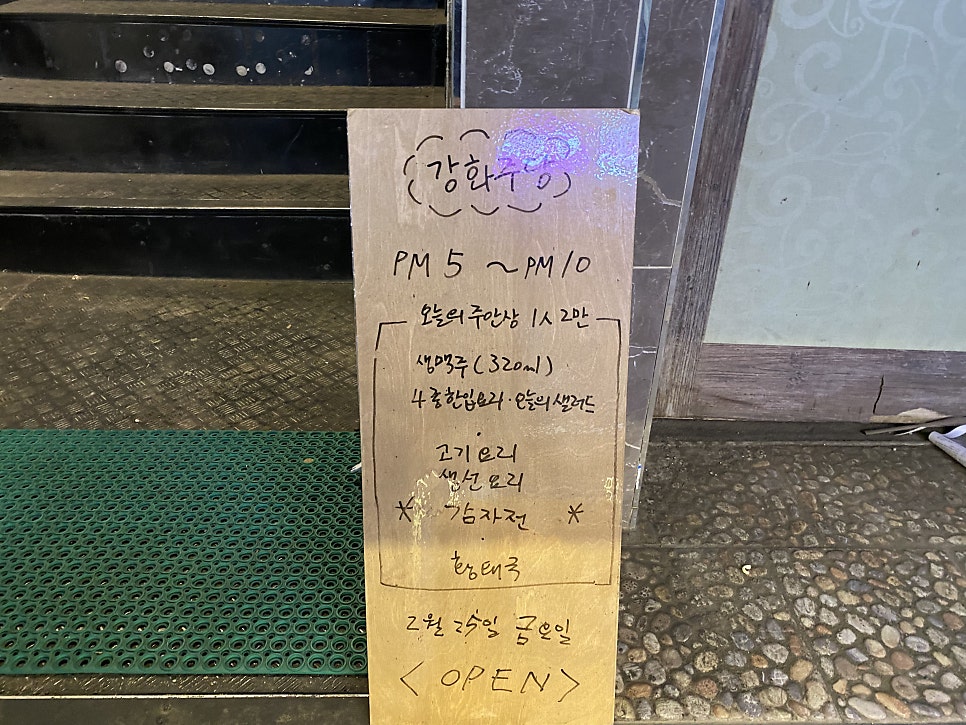 강화주당
PM 5 ~ PM 10
오늘의 주안상 1人 2만
생맥주 (320ml)
4종한입요리·오늘의 샐러드
·
고기요리
생선요리
* 감자전 *
·
황태국
2월 25일 금요일
< OPEN >